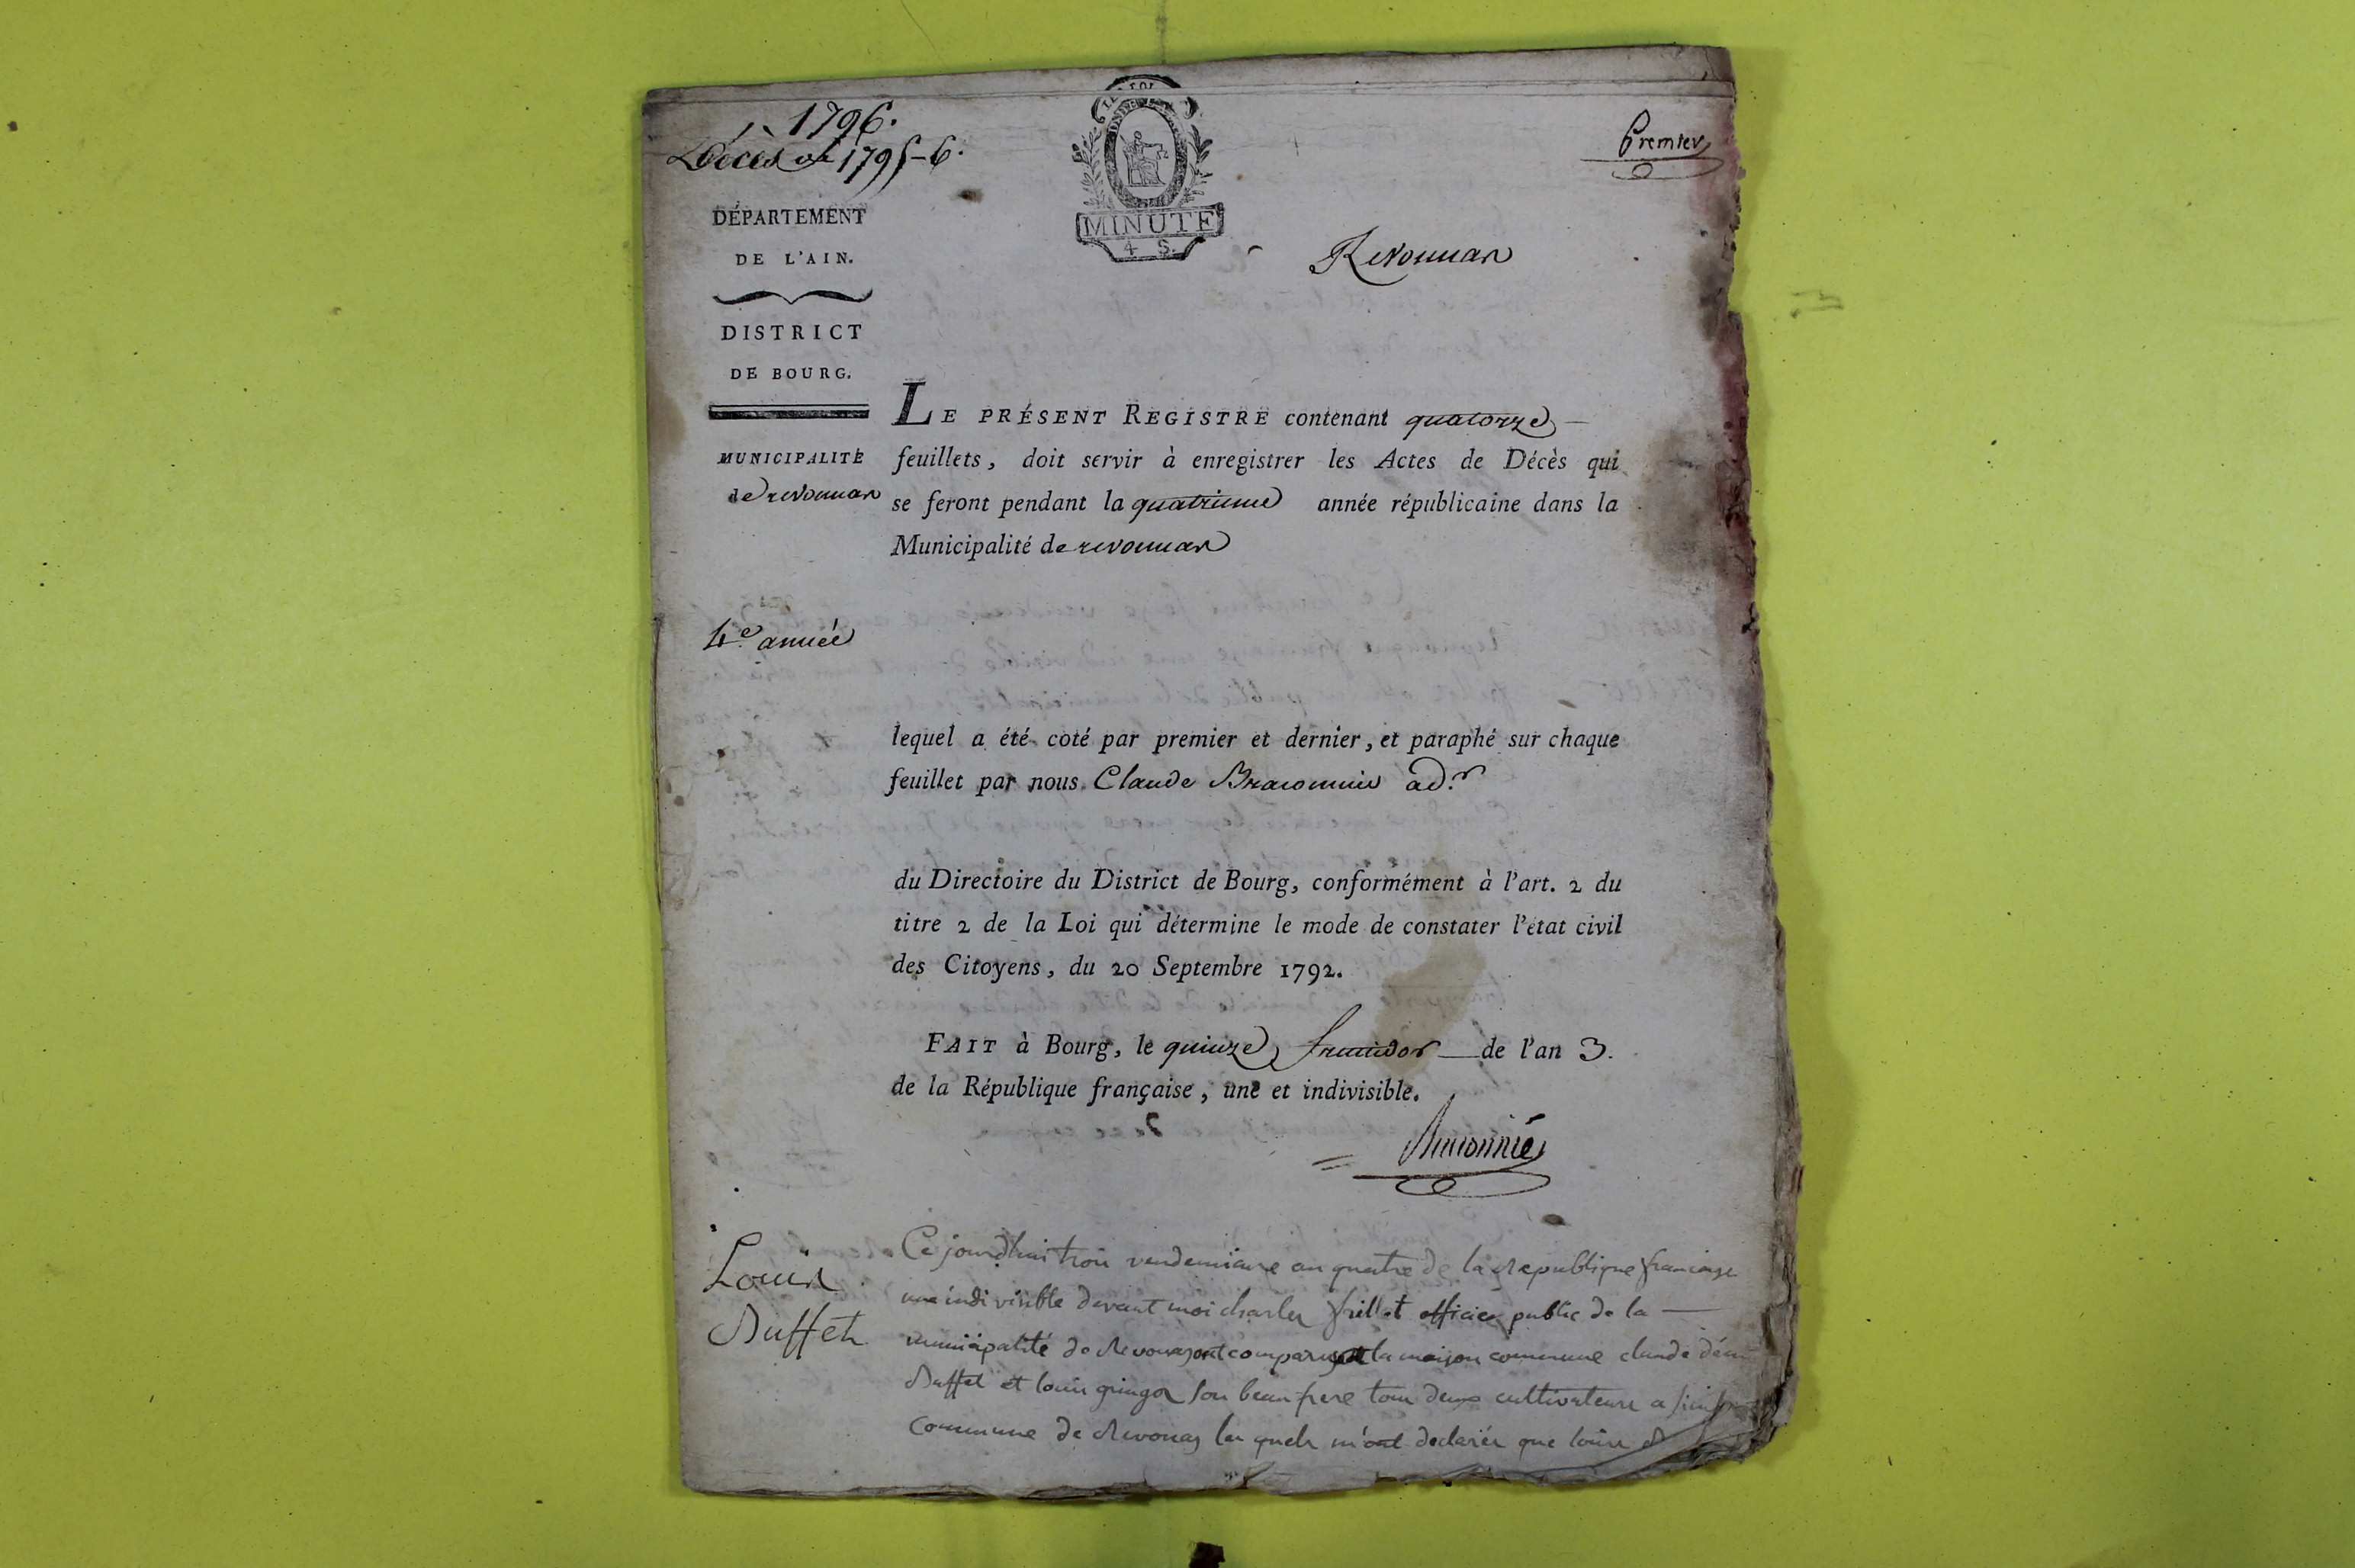 1796.
Décès de 1795-6.
Premier
LA LOI
MINUTE
4 S.
DÉPARTEMENT
DE L'AIN.
Revonnas
DISTRICT
DE BOURG.
LE PRÉSENT REGISTRE contenant quatorze
MUNICIPALITÉ
de revonnas
feuillets, doit servir à enregistrer les Actes de Décès qui
se feront pendant la quatrieme année républicaine dans la
Municipalité de revonnas
4e année
lequel a été coté par premier et dernier, et paraphé sur chaque
feuillet par nous Claude Braconnié adr
du Directoire du District de Bourg, conformément à l'art. 2 du
titre 2 de la Loi qui détermine le mode de constater l'état civil
des Citoyens, du 20 Septembre 1792.
FAIT à Bourg, le quinze fructidor de l'an 3.
de la République française, une et indivisible.
Braconnié
Louis
Buffet
Ce jourdhui trois vendemiaire an quatre de la Republique francaise
une indivisible devant moi charles frillet officier public de la
municipalité de Revonas ont comparu la maison commune claude
Buffet et louis gringos son beau frere tous deux cultivateurs a
Commune de Revonas les quels m'ont declarés que louis